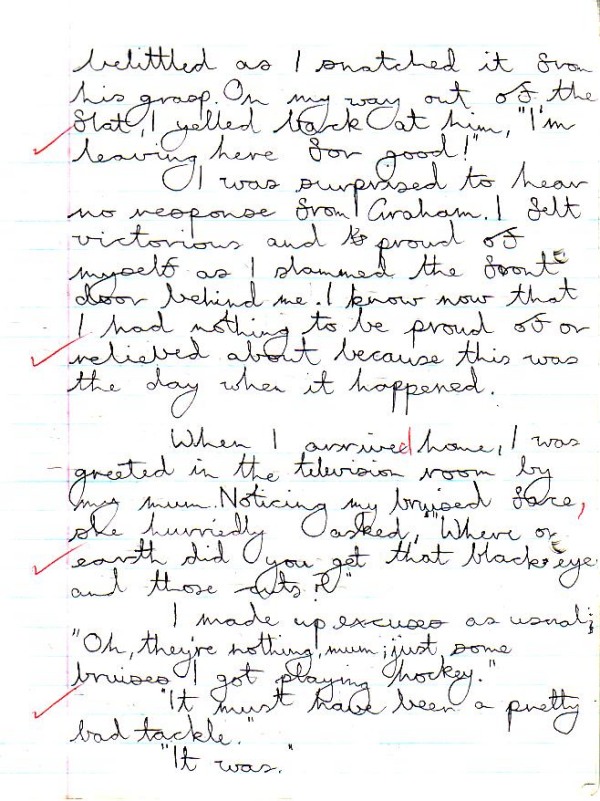 belittled as I snatched it from
his grasp. On my way out of the
flat, I yelled back at him, "I'm
leaving here for good!"
I was surprised to hear
no response from Graham. I felt
victorious and proud of
myself as I slammed the front
door behind me. I know now that
I had nothing to be proud of or
relieved about because this was
the day when it happened.
When I arrived home, I was
greeted in the television room by
my mum. Noticing my bruised face,
she hurriedly asked, "Where on
earth did you get that black eye
and those cuts?"
I made up excuses as usual;
"Oh, they're nothing, mum; just some
bruises I got playing hockey."
"It must have been a pretty
bad tackle."
"It was."